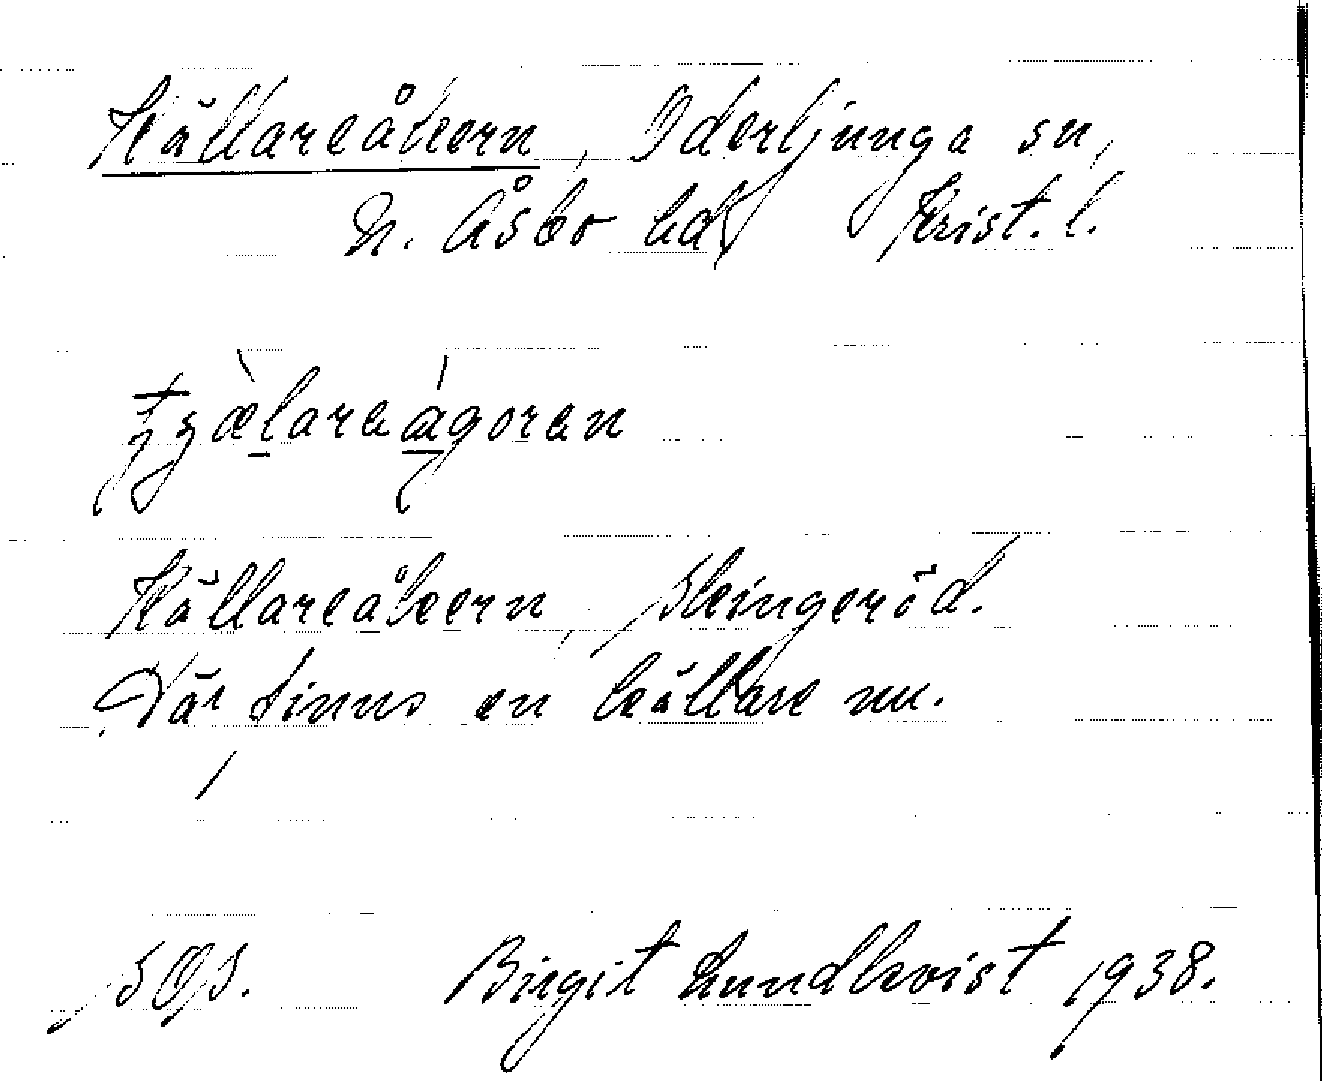 Källareåkern, Oderljunga sn,
N. Åsbo hd Krist. l.
Källareåkern, Skingeröd.
Där finns en källare nu.
Birgit Lundkvist 1938.